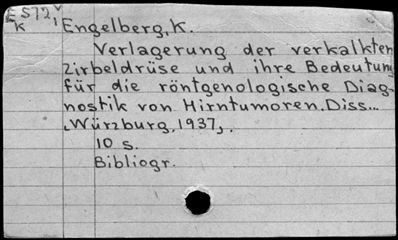 E 572 v
K 1
Engelberg, K.
Verlagerung der verkalkten
Zirbeldrüse und ihre Bedeutung
für die röntgenologische Diag-
nostik von Hirntumoren. Diss...
Würzburg, 1937,.
10 s.
Bibliogr.